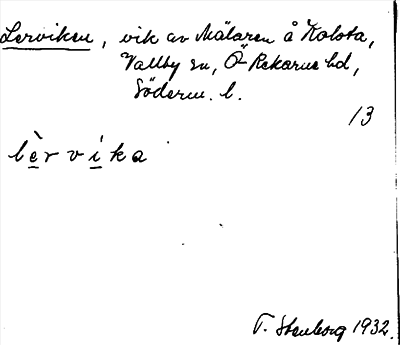 Lerviken, vik av Mälaren å Kolsta,
Vallby sn, Ö Rekarne hd,
Söderm. l.
13
lèrvika
T. Stenborg 1932.